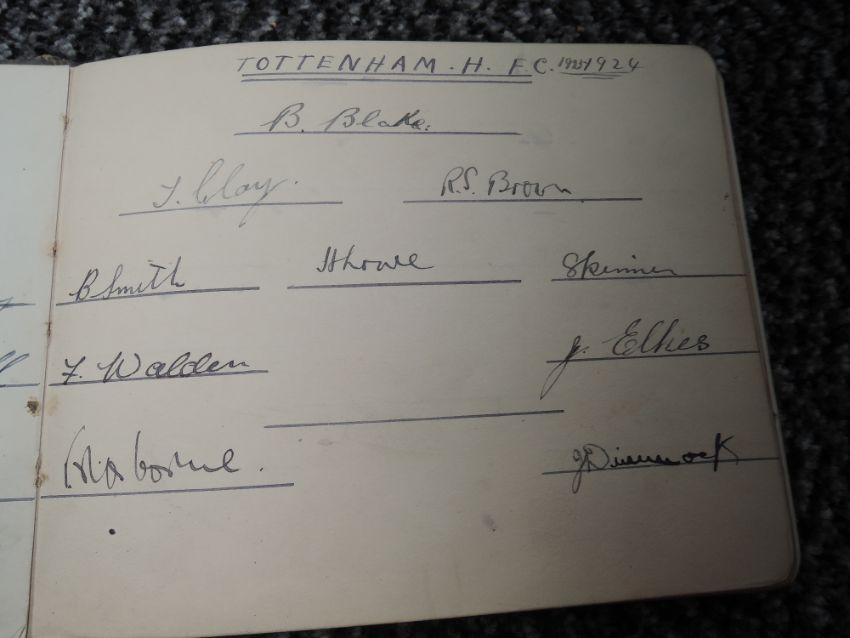 TOTTENHAM. H. F.C. 1924
B. Blake.
T. Clay. R.S. Brown
B Smith H Lowe Skinner
F. Walden J. Elkes
Osborne. J Dimmock